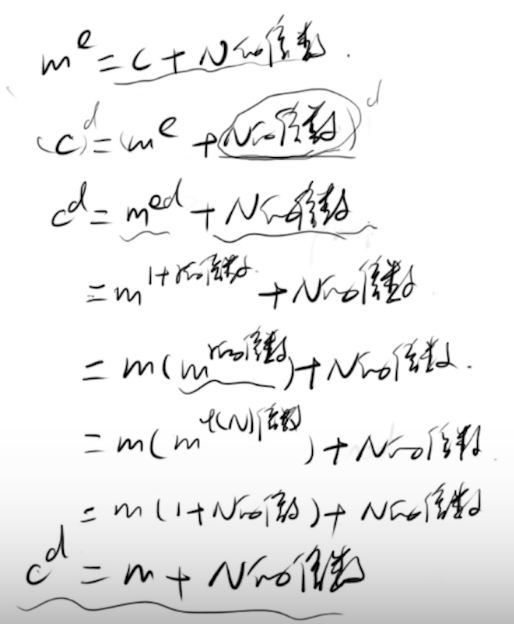 m^e = c + N的倍数.
(c)^d = (m^e + N的倍数)^d
c^d = m^{ed} + N的倍数.
= m^{1+r的倍数} + N的倍数
= m(m^{r的倍数}) + N的倍数.
= m(m^{φ(N)倍数}) + N的倍数.
= m(1+N的倍数) + N的倍数
c^d = m + N的倍数